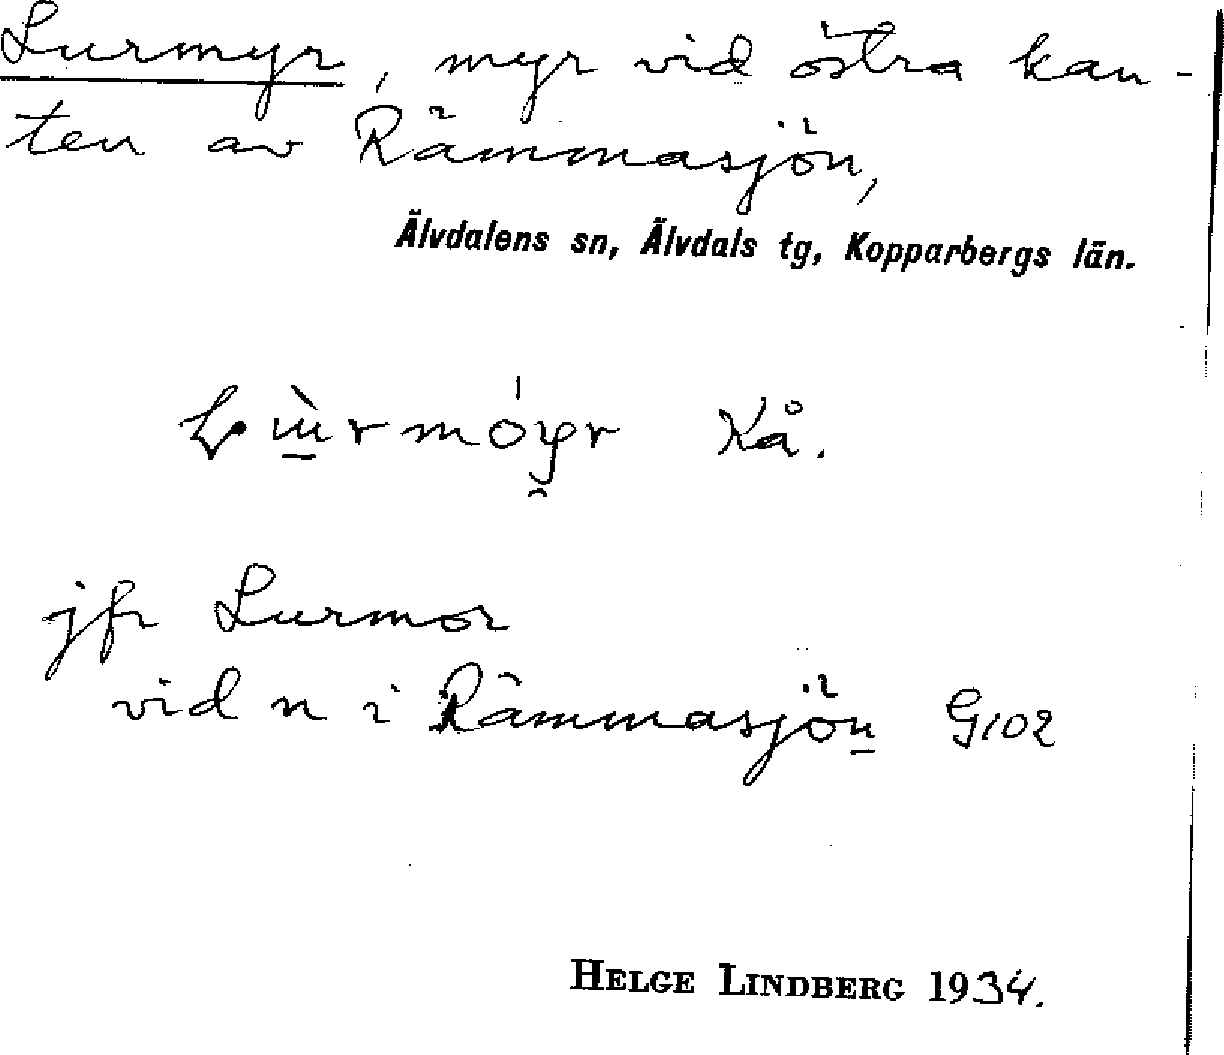 Lurmyr, myr vid östra kan-
ten av Rämmasjön,
Älvdalens sn, Älvdals tg, Kopparbergs län.
Kå.
jfr Lurmor
vid n i Rämmasjön G102
HELGE LINDBERG 1934.